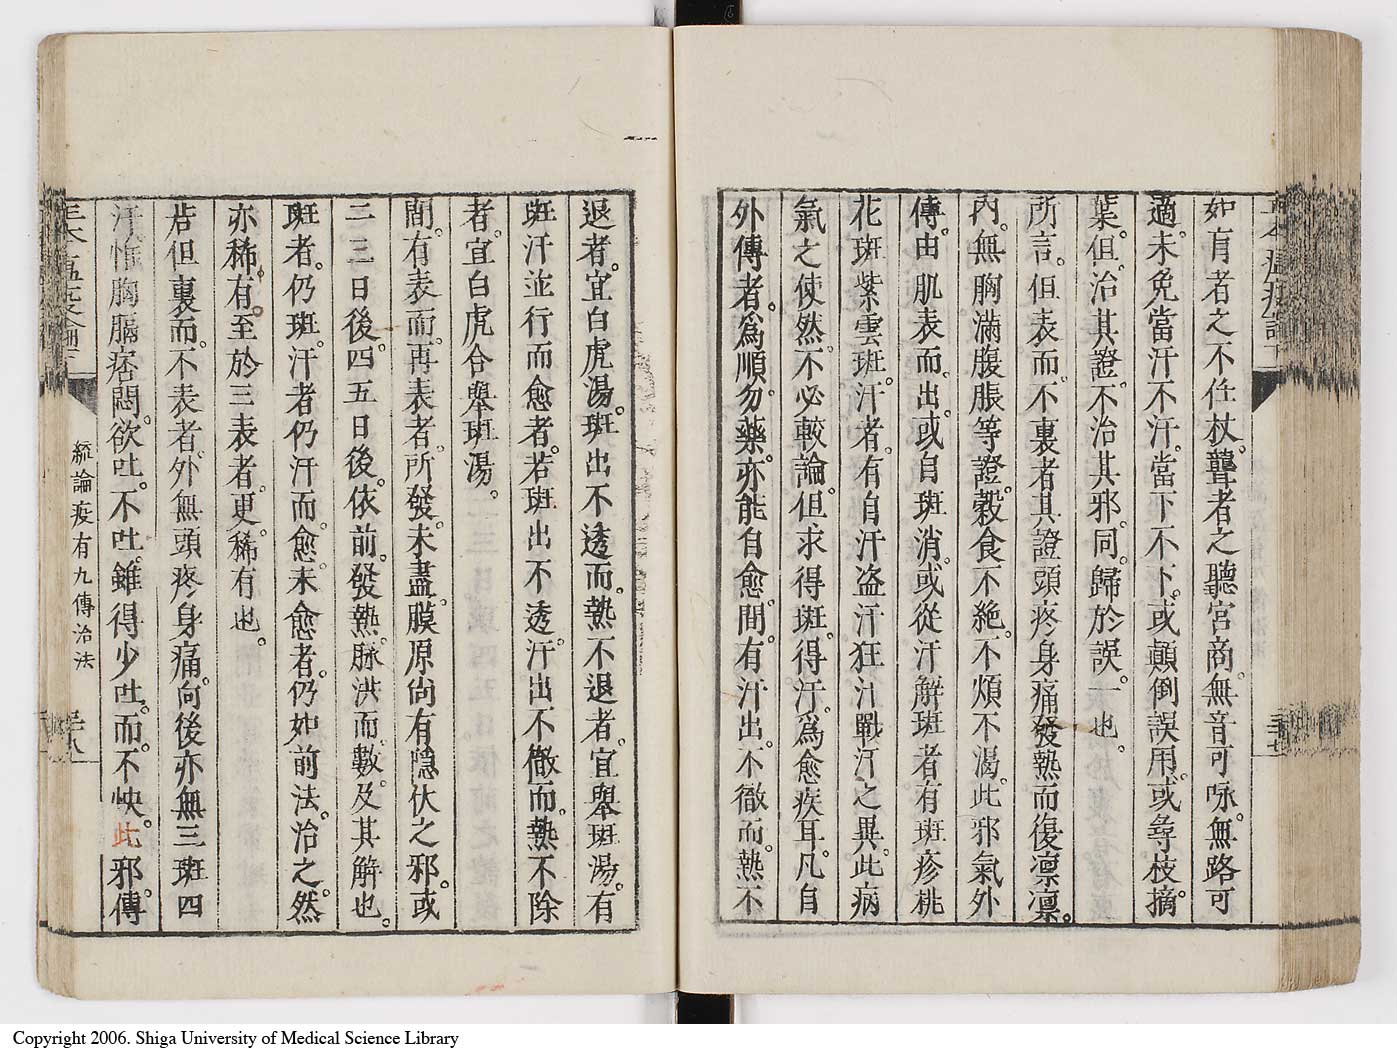 如盲者之不任杖聾者之聽宮商無音可咏無路可
適未免當汗不汗當下不下或顛倒誤用或尋枝摘
葉但治其證不治其邪同歸於誤一也。
所言但表而不裏者其證頭疼身痛發熱而復凛凛。
內無胸滿腹脹等證穀食不絶不煩不渴此邪氣外
傳由肌表而出或自斑消或從汗解斑者有斑疹桃
花斑紫雲斑汗者有自汗盗汗狂汗戰汗之異此病
氣之使然不必較論但求得斑得汗爲愈疾耳凡自
外傳者爲順勿藥亦能自愈間有汗出不徹而熱不
退者宜白虎湯斑出不透而熱不退者宜舉斑湯有
斑汗並行而愈者若斑出不透汗出不徹而熱不除
者宜白虎合舉斑湯。
間有表而再表者所發未盡膜原尚有隱伏之邪或
二三日後四五日後依前發熱脉洪而數及其解也
斑者仍斑汗者仍汗而愈未愈者仍如前法治之然
亦稀有至於三表者更稀有也。
若但裏而不表者外無頭疼身痛向後亦無三斑四
汗惟胸膈痞悶欲吐不吐雖得少吐而不快此邪傳
統論疫有九傳治法